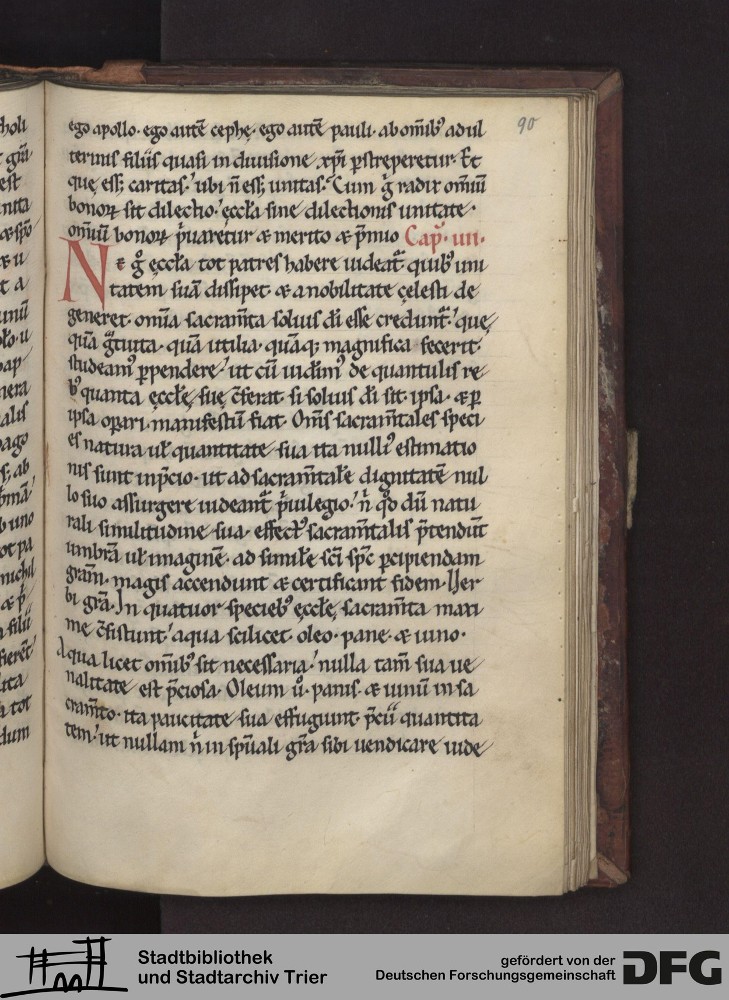 90
ego apollo· ego autē cephę· ego autē pauli· ab om̄ibꝰ ad ul
timis filiis quasi in diuisione xp̄i ꝑstreperetur. Et
quę eēt caritas, ubi n̄ eēt unitas. Cum g̊ radix om̄iū
bonoꝝ sit dilectio, ęccl̄a sine dilectionis unitate·
om̄iū bonoꝝ p̍uaretur & merito & p̄mio Cap̄· uii·
Ne g̊ ęccl̄a tot patres habere uideat̄ quibꝰ uni
tatem suā dissipet & a nobilitate cęlesti de
generet· omīa sacram̄ta solius dī esse credunt̄, quę
quā g̍tuita· quā utilia· quāq; magnifica fecerit·
studeam᾽ ꝑpendere, ut cū uidīm᾽ de quantulis re
bꝰ quanta ęccl̄ę suę c̄ferat· si solius dī sit ipsa· & ꝑ
ipsa opari manifestū fiat. Om̄s sacram̄tales speci
es natura ul̄ quantitate sua ita nulli᾽ estimatio
nis sunt in p̄cio· ut ad sacram̄tal̄e dignitatē nul
lo suo assurgere uideant̄ p̍uilegio, n̄ qđ dū natu
rali similitudine sua· effect᾽ sacram̄talis p̄tendūt
umbrā ul̄ imaginē· ad simil̄e sc̄i sp̄c ꝑcipiendam
gram̄· magis accendunt & certificant fidem· Uer
bi grā· In quatuor speciebꝰ ęccl̄ę sacram̄ta maxi
me c̄sistunt, aqua scilicet· oleo· pane· & uino·
Aqua licet om̄ibꝰ sit necessaria, nulla tam̄ sua ue
nalitate est p̄ciosa· Oleum u̍· panis· & uinū in sa
cram̄to· ita paucitate sua effugiunt· p̄cii quantita
tem, ut nullam n̄ in sp̄uali grā sibi uendicare uide
Stadtbibliothek
und Stadtarchiv Trier
gefördert von der
Deutschen Forschungsgemeinschaft
DFG